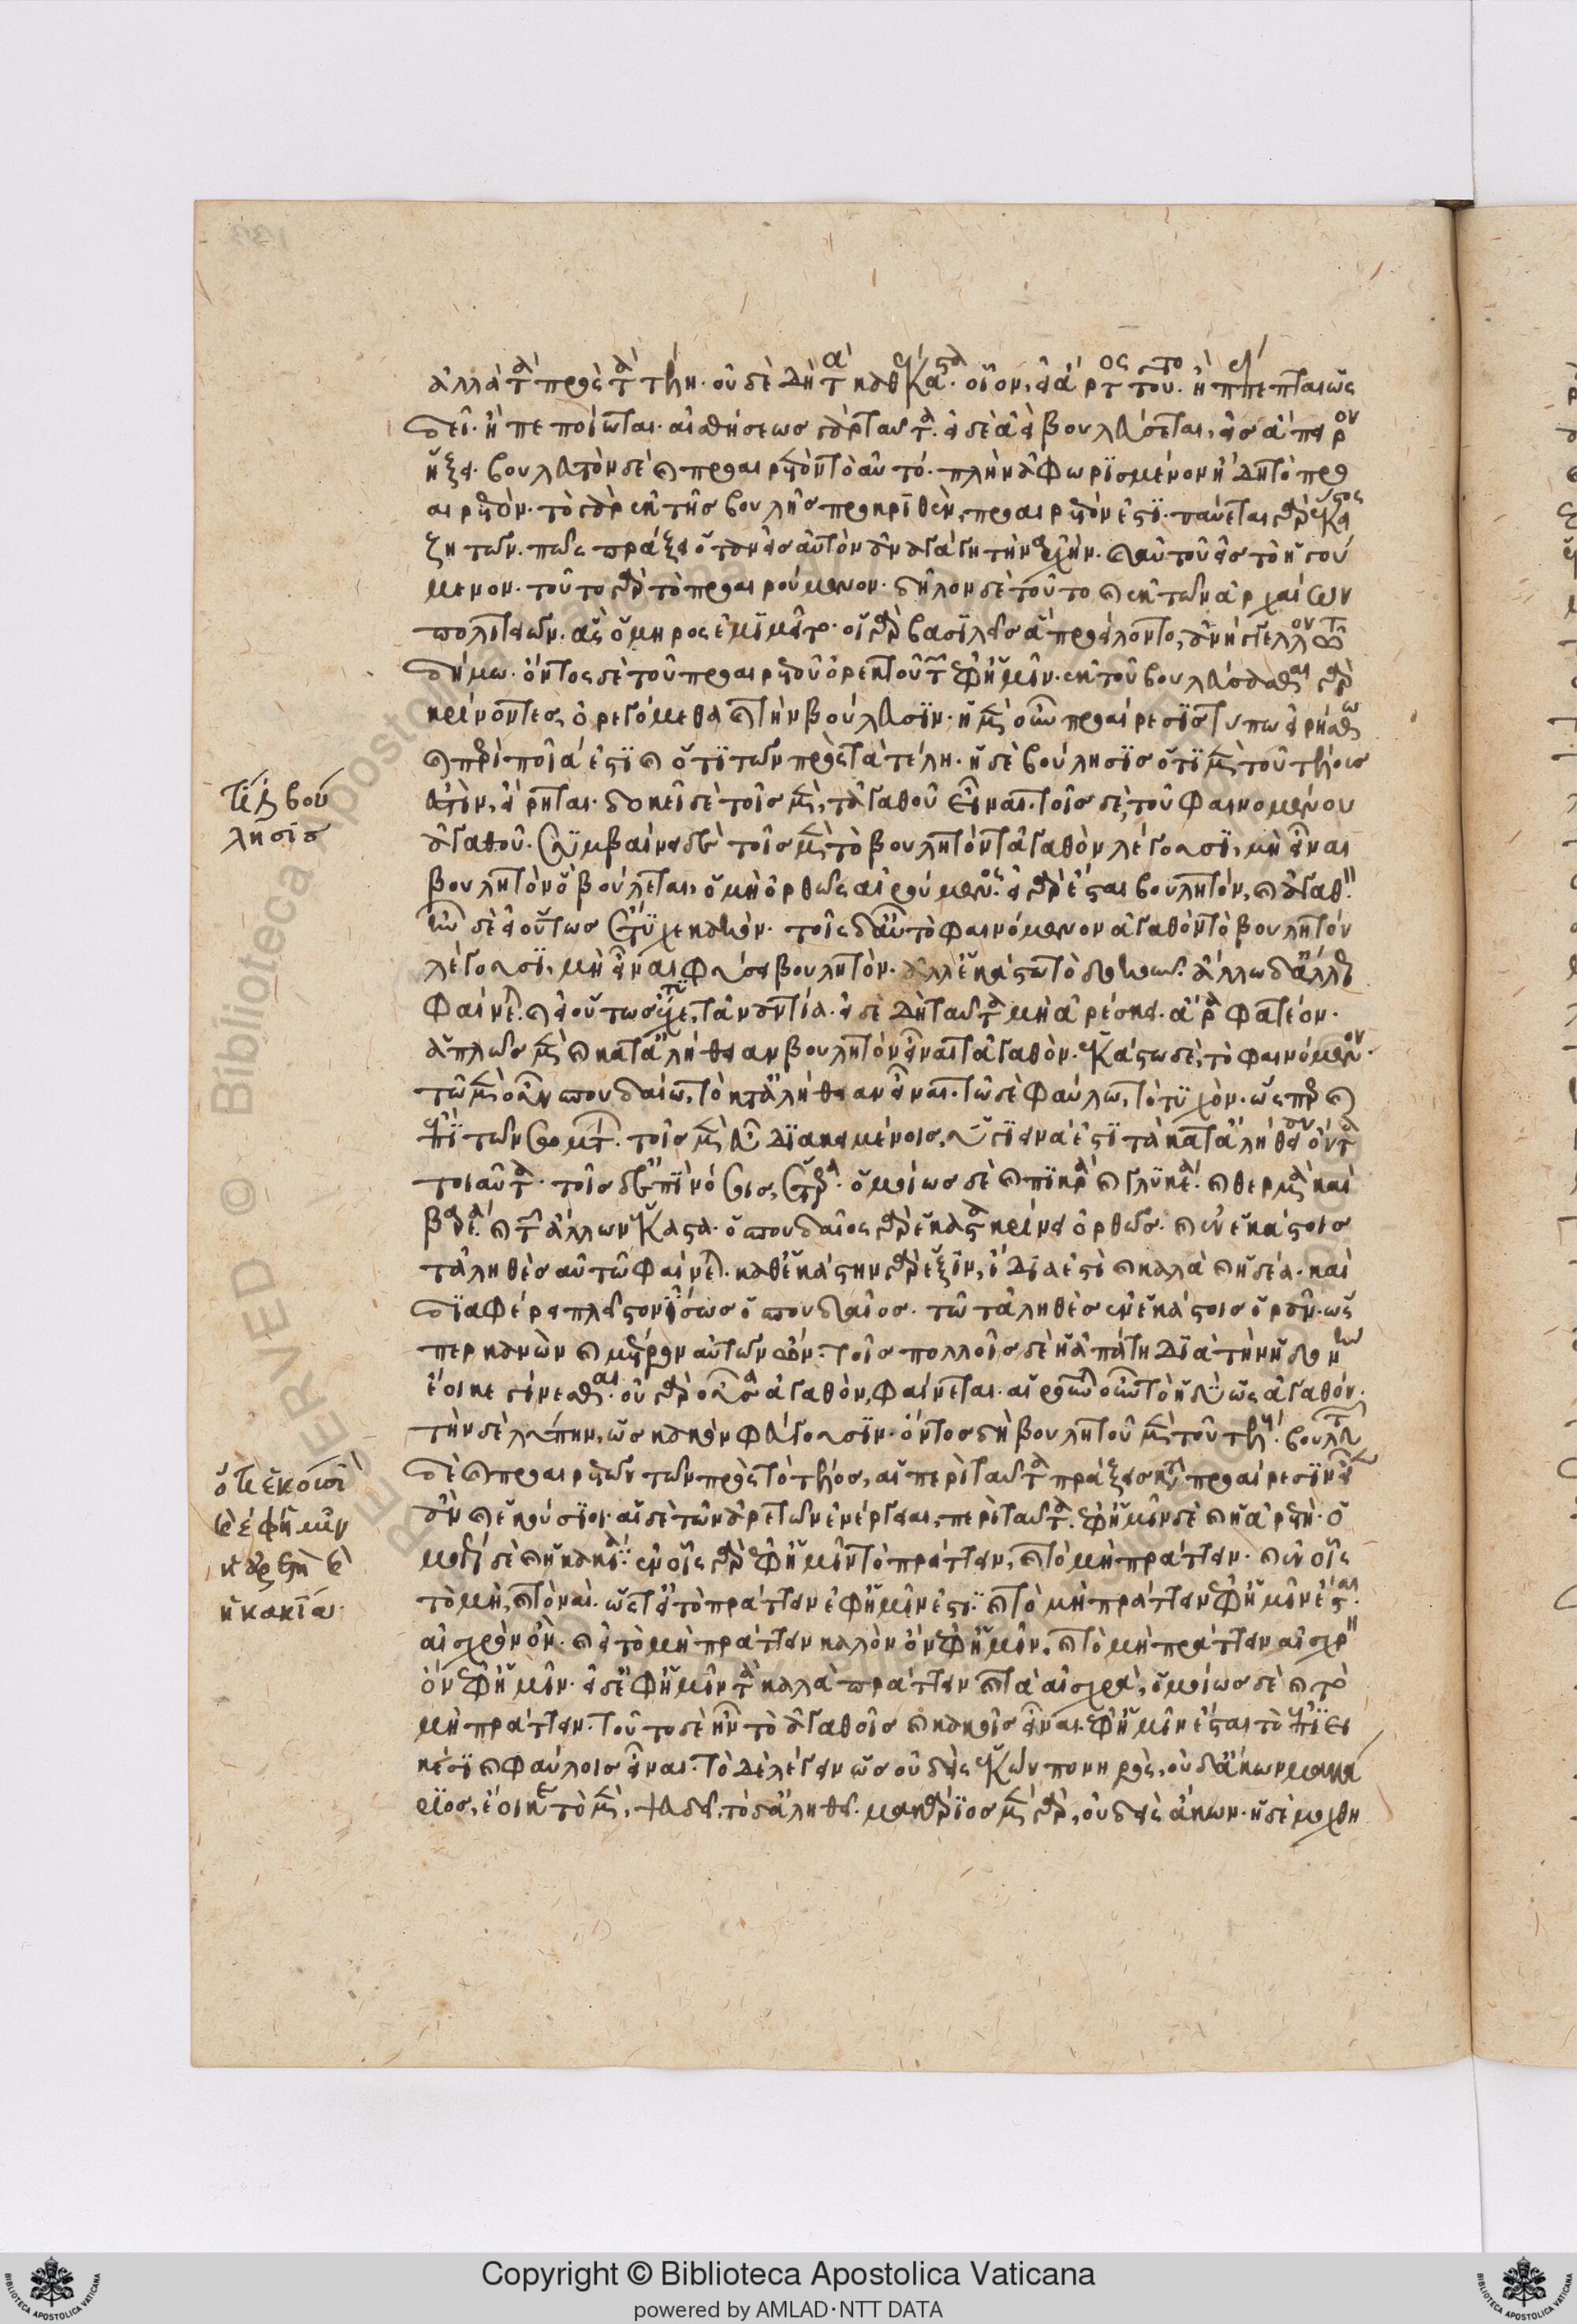 ἀλλὰ τὰ πρὸς τὰ τέλη. οὐδὲ δὴ τὰ καθέκαστα. οἷον, εἰ ἄρτος τοῦτο. ἢ πέπεπται ὡς
δεῖ. ἢ πεποίηται. αἰσθήσεως γὰρ ταῦτα. εἰ δὲ ἀεὶ βουλεύσεται, εἰς ἄπειρον
ἥξει. βουλευτὸν δὲ καὶ προαιρετὸν τὸ αὐτό. πλὴν ἀφωρισμένον ἤδη τὸ προ
αιρετόν. τὸ γὰρ ἐκ τῆς βουλῆς προκριθὲν, προαιρετόν ἐστι. παύεται γὰρ ἕκαστος
ζητῶν. πῶς πράξει ὅταν εἰς αὑτὸν ἀναγάγῃ τὴν ἀρχήν. καὶ αὑτοῦ εἰς τὸ ἡγού
μενον. τοῦτο γὰρ τὸ προαιρούμενον. δῆλον δὲ τοῦτο καὶ ἐκ τῶν ἀρχαίων
πολιτειῶν. ἃς ὅμηρος ἐμιμεῖτο. οἱ γὰρ βασιλεῖς ἃ προείλοντο, ἀνήγγελλον τῷ
δήμω. ὄντος δὲ τοῦ προαιρετοῦ ὀρεκτοῦ τῶν ἐφ' ἡμῖν. ἐκ τοῦ βουλεύσασθαι γὰρ
κρίνοντες, ὀρεγόμεθα κατὰ τὴν βούλευσιν. ἡ μὲν οὖν προαίρεσις τύπω εἰρήσθω
καὶ περὶ ποῖά ἐστι καὶ ὅτι τῶν πρὸς τὰ τέλη. ἡ δὲ βούλησις ὅτι μὲν τοῦ τέλους
ἐστὶν, εἴρηται. δοκεῖ δὲ τοῖς μὲν, τἀγαθοῦ εἶναι. τοῖς δὲ, τοῦ φαινομένου
ἀγαθοῦ. συμβαίνει δὲ τοῖς μὲν τὸ βουλητὸν τἀγαθὸν λέγουσι, μὴ εἶναι
βουλητὸν ὃ βούλεται, ὁ μὴ ὀρθῶς αἱρούμενος. εἰ γὰρ ἔσται βουλητόν, καὶ ἀγαθόν.
ἦν δὲ εἰ οὕτως ἔτυχε κακόν. τοῖς δ' αὖ τὸ φαινόμενον ἀγαθὸν τὸ βουλητόν
λέγουσι, μὴ εἶναι φύσει βουλητόν. ἀλλ' ἑκάστω τὸ δοκοῦν. ἄλλω δ' ἄλλο
φαίνεται. καὶ εἰ οὕτως ἔτυχε, τἀναντία. εἰ δὲ δὴ ταῦτα μὴ ἀρέσκει. ἆρα φατέον.
ἁπλῶς μὲν καὶ κατ' ἀλήθειαν βουλητὸν εἶναι τἀγαθόν. ἑκάστω δὲ, τὸ φαινόμενον.
τῶ μὲν οὖν σπουδαίω, τὸ κατ' ἀλήθειαν εἶναι. τῶ δὲ φαύλω, τὸ τυχόν. ὥσπερ καὶ
ἐπὶ τῶν σωμάτων. τοῖς μὲν εὖ διακειμένοις, ὑγιεινά ἐστι τὰ κατ' ἀλήθειαν ὄντα
τοιαῦτα. τοῖς δ' ἐπινόσοις, ἕτερα. ὁμοίως δὲ καὶ πικρὰ καὶ γλυκέα. καὶ θερμὰ καὶ
βαρέα. καὶ τῶν ἄλλων ἕκαστα. ὁ σπουδαῖος γὰρ ἕκαστα κρίνει ὀρθῶς. καὶ ἐν ἑκάστοις
τἀληθὲς αὐτῶ φαίνεται. καθ' ἑκάστην γὰρ ἕξιν, ἴδιά ἐστι καὶ καλὰ καὶ ἡδέα. καὶ
διαφέρει πλεῖστον ἴσως ὁ σπουδαῖος. τῶ τἀληθὲς ἐν ἑκάστοις ὁρᾶν. ὥς
περ κανὼν καὶ μέτρον αὐτῶν ὤν. τοῖς πολλοῖς δὲ ἡ ἀπάτη διὰ τὴν ἡδονὴν
ἔοικε γίνεσθαι. οὐ γὰρ οὖσα ἀγαθὸν, φαίνεται. αἱροῦνται οὖν τὸ ἡδὺ ὡς ἀγαθόν.
τὴν δὲ λύπην, ὡς κακὸν φεύγουσιν. ὄντος δὴ βουλητοῦ μὲν τοῦ τέλους. βουλευτῶν
δὲ καὶ προαιρετῶν τῶν πρὸς τὸ τέλος, αἱ περὶ ταῦτα πράξεις κατὰ προαίρεσιν εἶεν
ἂν καὶ ἑκούσιοι. αἱ δὲ τῶν ἀρετῶν ἐνέργειαι, περὶ ταῦτα. ἐφ' ἡμῖν δὲ καὶ ἡ ἀρετή. ὁ
μοίως δὲ καὶ ἡ κακία. ἐν οἷς γὰρ ἐφ' ἡμῖν τὸ πράττειν, καὶ τὸ μὴ πράττειν. καὶ ἐν οἷς
τὸ μὴ, καὶ τὸ ναί. ὥστ' εἰ τὸ πράττειν ἐφ' ἡμῖν ἐστι. καὶ τὸ μὴ πράττειν ἐφ' ἡμῖν ἔσται.
αἰσχρὸν ὄν. καὶ εἰ τὸ μὴ πράττειν καλὸν ὂν ἐφ' ἡμῖν, καὶ τὸ μὴ πράττειν αἰσχρὸν
ὂν ἐφ' ἡμῖν. εἰ δὲ ἐφ' ἡμῖν τὰ καλὰ πράττειν καὶ τὰ αἰσχρά, ὁμοίως δὲ καὶ τὸ
μὴ πράττειν. τοῦτο δὲ ἦν τὸ ἀγαθοῖς καὶ κακοῖς εἶναι. ἐφ' ἡμῖν ἔσται τὸ ἐπιει
κέσι καὶ φαύλοις εἶναι. τὸ δὲ λέγειν ὡς οὐδεὶς ἑκὼν πονηρὸς, οὐδ' ἄκων μακά
ριος, ἔοικε τὸ μὲν, ψευδεῖ, τὸ δ' ἀληθεῖ. μακάριος μὲν γὰρ, οὐδεὶς ἄκων. ἡ δὲ μοχθη
τί ἐστι βού
λησις
ὅτι ἑκούσιον
καὶ ἐφ' ἡμῖν
ἡ ἀρετὴ καὶ
ἡ κακία.
RESERVED © Biblioteca Apostolica Vaticana
Copyright © Biblioteca Apostolica Vaticana
powered by AMLAD·NTT DATA
BIBLIOTECA APOSTOLICA VATICANA
BIBLIOTECA APOSTOLICA VATICANA